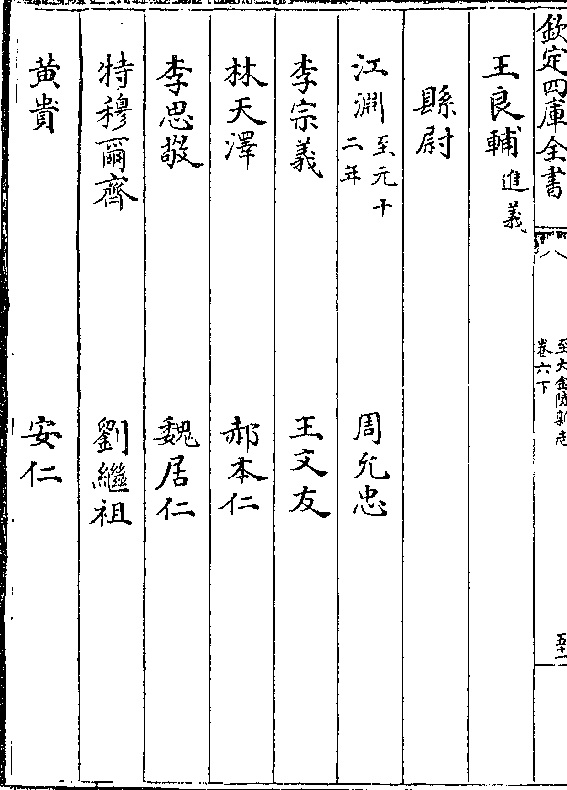 欽定四庫全書
至大金陵新志
卷六下
王良輔進義
縣尉
江淵至元十二年 周允忠
李宗義 王文友
林天澤 郝本仁
李思敬 魏居仁
特穆爾齊 劉繼祖
黃貴 安仁